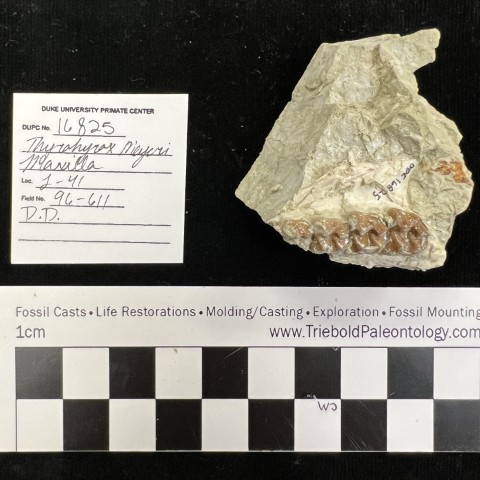 DUKE UNIVERSITY PRIMATE CENTER
DUPC No. 16825
Thyrohyrax Meyeri
Maxilla
Loc. L-41
Field No. 96-611
D.D.
DPC 16825
Fossil Casts • Life Restorations • Molding/Casting • Exploration • Fossil Mounting
1cm
www.TrieboldPaleontology.com
CM